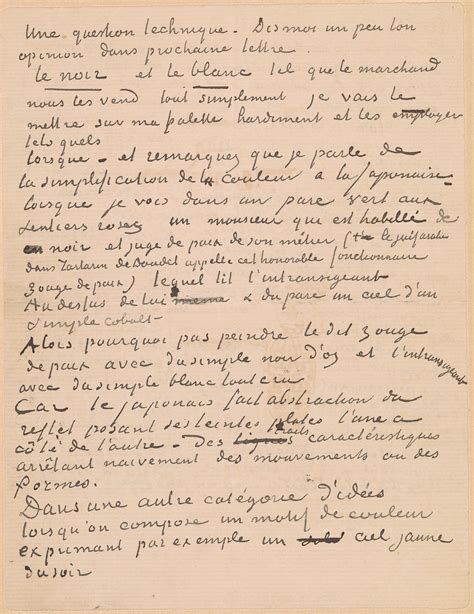 Une question technique. Dis moi un peu ton
opinion dans prochaine lettre.
le noir et le blanc tel que le marchand
nous les vend tout simplement je vais le
mettre sur ma palette hardiment et les employer
tels quels
lorsque – et remarquez que je parle de
la simplification de la couleur a la Japonaise –
lorsque je vois dans un parc vert aux
sentiers roses un monsieur qui est habillé de
en noir et juge de paix de son métier ( le juif arabe
dans Tartarin de Daudet appelle cet honorable fonctionnaire
zouge de paix) lequel lit l'intransigeant
Au dessus de lui meme & du parc un ciel d'un
simple cobalt –
Alors pourquoi pas peindre le dit zouge
de paix avec du simple noir d'os et l'intransigeant
avec du simple blanc tout cru
Car le Japonais fait abstraction du
reflet posant des teintes plates l'une a
côté de l'autre – Des lignes traits caractéristiques
arrêtant naivement des mouvements ou des
formes.
Dans une autre catégorie d'idées
lorsqu'on compose un motif de couleur
exprimant par exemple un ciel jaune
du soir